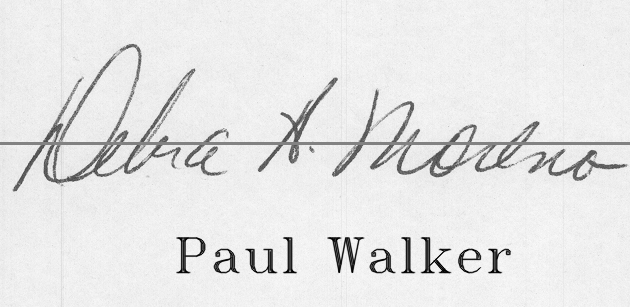 Debra H. Moreno
Paul Walker